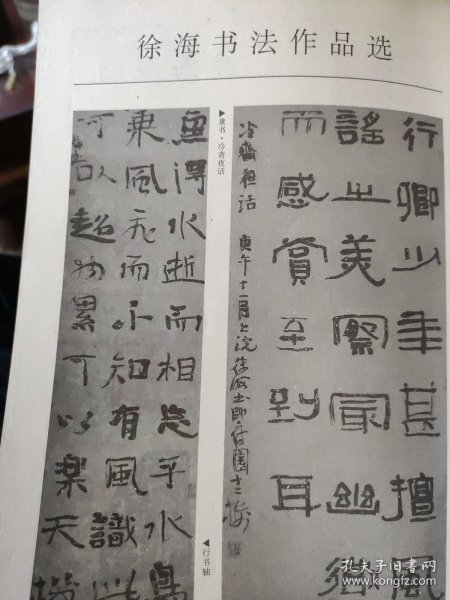 徐海书法作品选
行卿少年甚擅風
謠之美察冡幽微
而感賞至到耳
冷齋夜話 庚午十一月上浣徐海书
▶隶书·冷斋夜话
魚得水逝而相忘乎水鳥
乘風飞而不知有風識此
可以超物累可以樂天機
◀行书轴
孔夫子旧书网